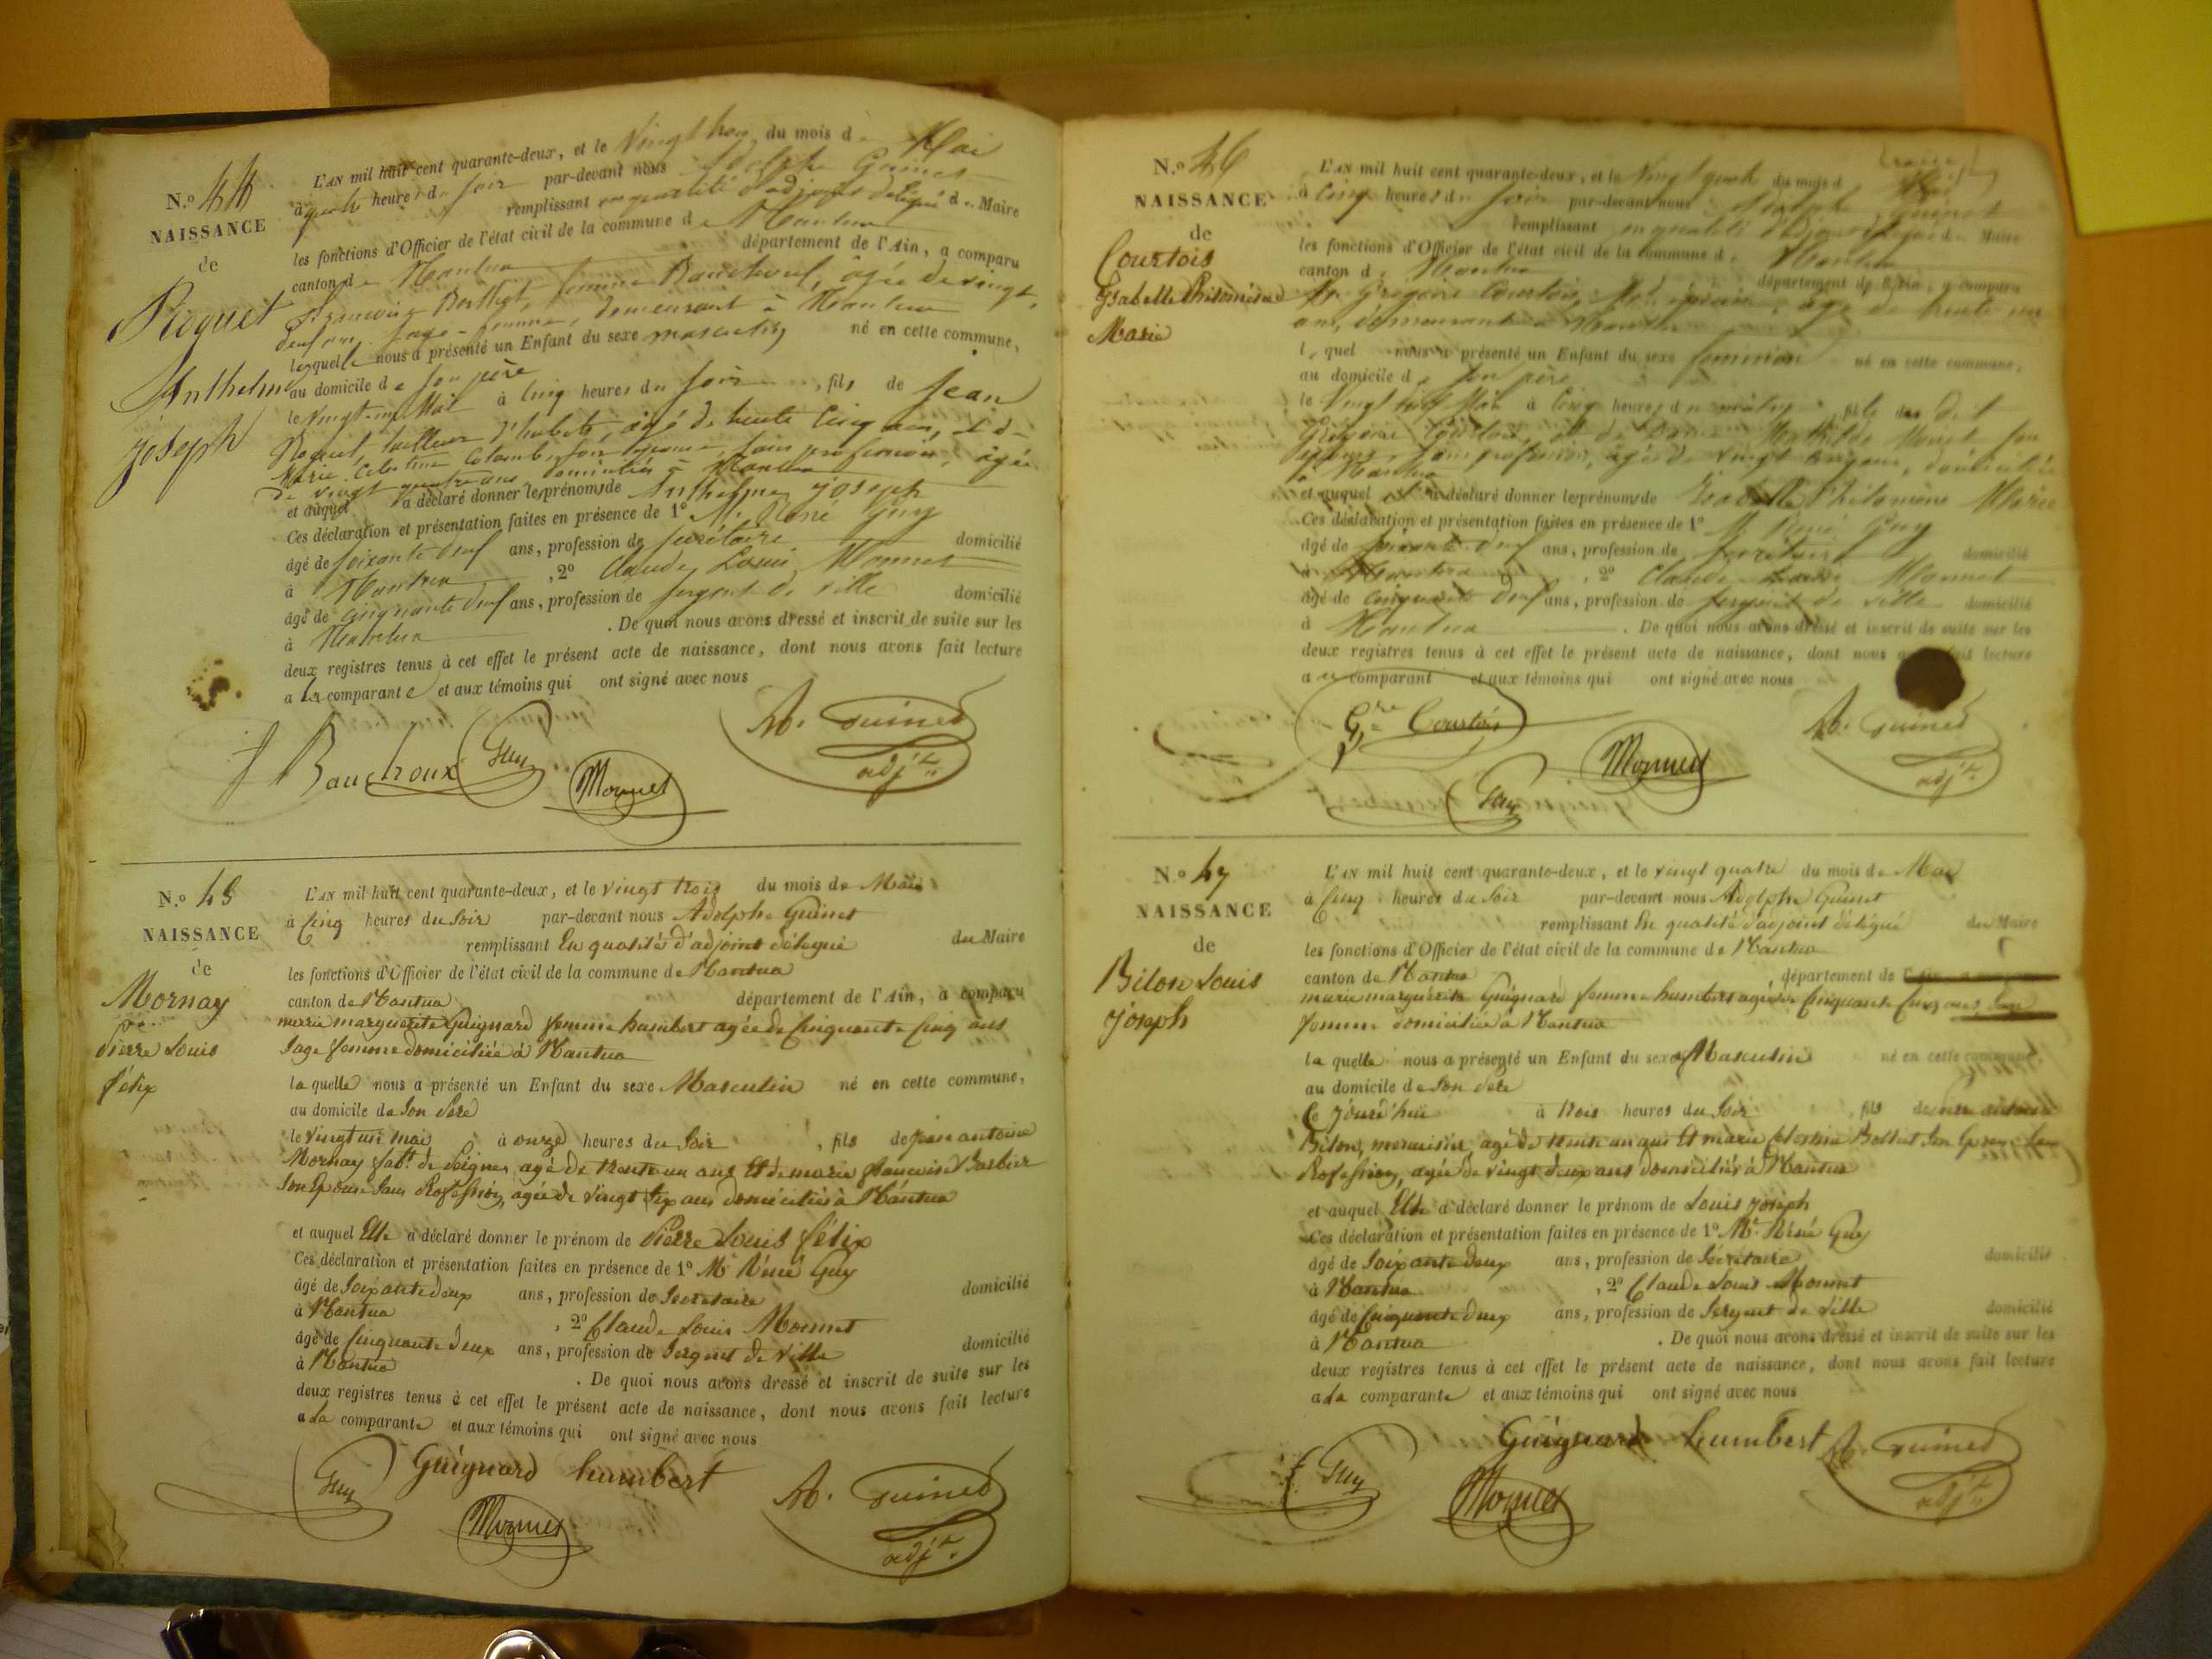 N.o 44
NAISSANCE
de
Roguet
Anthelme
Joseph
L'AN mil huit cent quarante-deux, et le Vingt trois du mois de Mai
à quatre heures du soir par-devant nous Adolphe Guinet
remplissant en qualité d'adjoint délégué du Maire
les fonctions d'Officier de l'état civil de la commune de Nantua
canton de Nantua département de l'Ain, a comparu
Françoise femme âgée de vingt
neuf ans, sage-femme, demeurant à Nantua
laquelle nous a présenté un Enfant du sexe masculin né en cette commune,
au domicile de son père
le vingt-un Mai à cinq heures du soir, fils de Jean
Roguet, tailleur d'habits, âgé de trente cinq ans, et de
Marie Célestine Colomb, son épouse, sans profession, âgée
de vingt quatre ans, domiciliés à Nantua
et auquel a déclaré donner les prénoms de Anthelme Joseph
Ces déclaration et présentation faites en présence de 1o M. René Guy
âgé de soixante deux ans, profession de secrétaire domicilié
à Nantua, 2o Claude Louis Monnet
âgé de cinquante deux ans, profession de sergent de ville domicilié
à Nantua. De quoi nous avons dressé et inscrit de suite sur les
deux registres tenus à cet effet le présent acte de naissance, dont nous avons fait lecture
a la comparante et aux témoins qui ont signé avec nous
f Bauchoux Guy Monnet A. Guinet adj.t
N.o 45
NAISSANCE
de
Mornay
Pierre Louis
félix
L'AN mil huit cent quarante-deux, et le vingt trois du mois de Mai
à Cinq heures du Soir par-devant nous Adolphe Guinet
remplissant En qualité d'adjoint délégué du Maire
les fonctions d'Officier de l'état civil de la commune de Nantua
canton de Nantua département de l'Ain, a comparu
marie marguerite Guignard femme humbert agée de Cinquante Cinq ans
Sage femme domiciliée à Nantua
la quelle nous a présenté un Enfant du sexe Masculin né en cette commune,
au domicile de Son Père
le vingt un mai à onze heures du Soir, fils de jean antoine
Mornay fabt. de Peignes, agé de trente un ans Et de marie françoise Barbier
Son Epouse Sans Profession, agée de vingt Six ans domiciliés à Nantua
et auquel Elle a déclaré donner le prénom de Pierre Louis félix
Ces déclaration et présentation faites en présence de 1o Mr Réné Guy
âgé de Soixante deux ans, profession de Secretaire domicilié
à Nantua, 2o Claude Louis Monnet
âgé de Cinquante deux ans, profession de Sergent de Ville domicilié
à Nantua. De quoi nous avons dressé et inscrit de suite sur les
deux registres tenus à cet effet le présent acte de naissance, dont nous avons fait lecture
a la comparante et aux témoins qui ont signé avec nous
Guy Guignard humbert Monnet A. Guinet adj.t
N.o 46
NAISSANCE
de
Courtois
Isabelle Philomène
Marie
L'AN mil huit cent quarante-deux, et le Vingt quatre du mois de Mai
à Cinq heures du soir par-devant nous Adolphe Guinet
remplissant en qualité d'adjoint délégué du Maire
les fonctions d'Officier de l'état civil de la commune de Nantua
canton de Nantua département de l'Ain, a comparu
Mr. Grégoire Courtois, Md. épicier, âgé de trente un
ans, demeurant à Nantua
lequel nous a présenté un Enfant du sexe féminin né en cette commune,
au domicile de son père
le Vingt Mai à Cinq heures du matin, fille du dit
Grégoire Courtois, et de Dame Mathilde son
épouse, sans profession, âgée de vingt ans, domiciliés
à Nantua
et auquel il a déclaré donner les prénoms de Isabelle Philomène Marie
Ces déclaration et présentation faites en présence de 1o M. René Guy
âgé de soixante deux ans, profession de secrétaire domicilié
à Nantua, 2o Claude Louis Monnet
âgé de cinquante deux ans, profession de sergent de ville domicilié
à Nantua. De quoi nous avons dressé et inscrit de suite sur les
deux registres tenus à cet effet le présent acte de naissance, dont nous fait lecture
a u comparant et aux témoins qui ont signé avec nous
Gre Courtois Guy Monnet A. Guinet adj.t
N.o 47
NAISSANCE
de
Bilon Louis
joseph
L'AN mil huit cent quarante-deux, et le vingt quatre du mois de Mai
à Cinq heures du Soir par-devant nous Adolphe Guinet
remplissant En qualité d'adjoint délégué du Maire
les fonctions d'Officier de l'état civil de la commune de Nantua
canton de Nantua, département de
marie marguerite Guignard femme humbert agée de Cinquante Cinq ans Sage
femme domiciliée à Nantua
la quelle nous a présenté un Enfant du sexe Masculin né en cette commune,
au domicile de Son Père
Ce jourd'hui à trois heures du Soir, fils de
Bilon, menuisier, agé de trente un ans Et marie Celestine Son Epouse Sans
Profession, agée de vingt deux ans domiciliés à Nantua
et auquel Elle a déclaré donner le prénom de Louis joseph
Ces déclaration et présentation faites en présence de 1o Mr. Réné Guy
âgé de Soixante deux ans, profession de Sécretaire domicilié
à Nantua, 2o Claude Louis Monnet
âgé de Cinquante deux ans, profession de Sergent de Ville domicilié
à Nantua. De quoi nous avons dressé et inscrit de suite sur les
deux registres tenus à cet effet le présent acte de naissance, dont nous avons fait lecture
a la comparante et aux témoins qui ont signé avec nous
Guy Guignard humbert Monnet A. Guinet adj.t